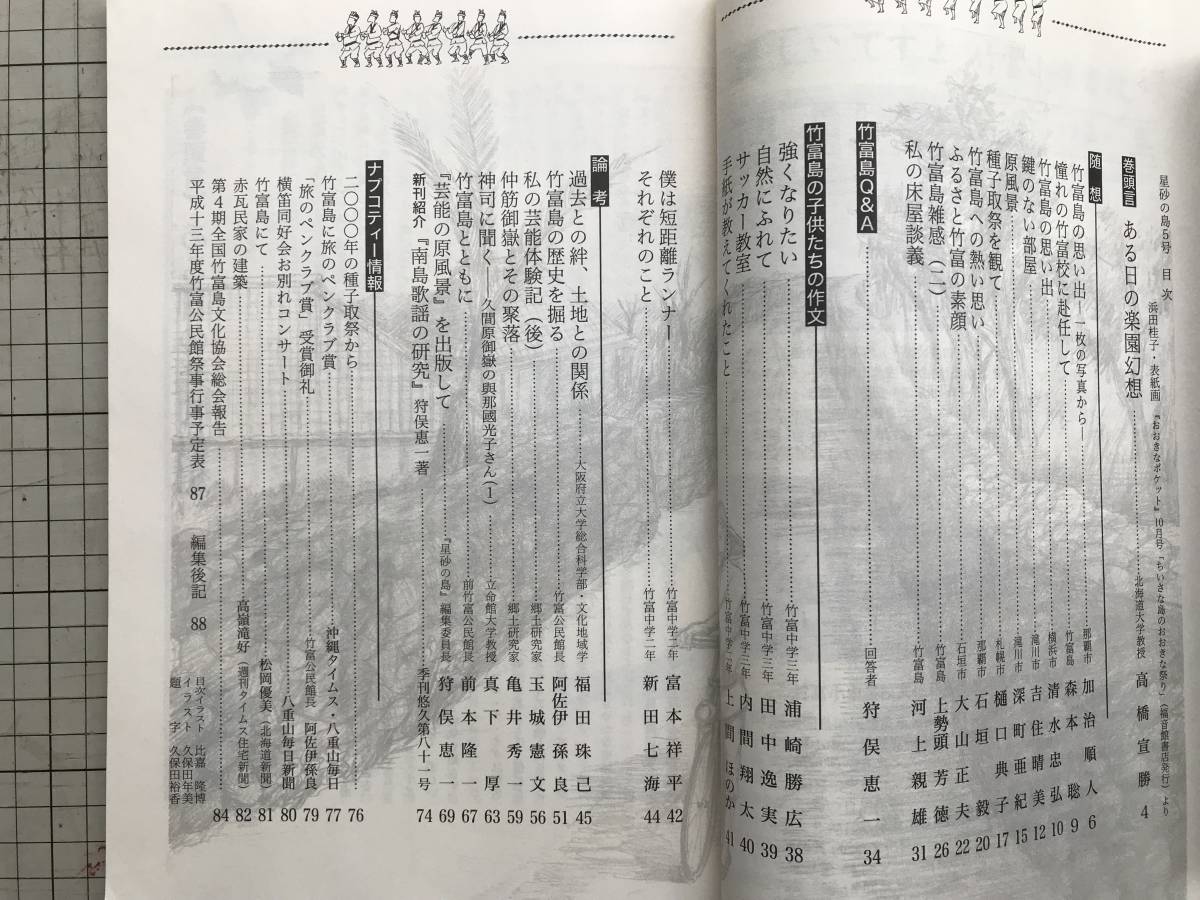 星砂の島5号 目次
浜田桂子・表紙画 『おおきなポケット』10月号「ちいさな島のおおきな祭り」(福音館書店発行)より
巻頭言 ある日の楽園幻想 北海道大学教授 高橋宣勝 4
随想
竹富島の思い出―一枚の写真から― 那覇市 加治順人 6
憧れの竹富校に赴任して 竹富島 森本聡 9
竹富島の思い出 横浜市 清水忠弘 10
鍵のない部屋 滝川市 吉住晴美 12
原風景 滝川市 深町亜紀 15
種子取祭を観て 札幌市 樋口典子 17
竹富島への熱い思い 那覇市 石垣毅 20
ふるさと竹富の素顔 石垣市 大山正夫 22
竹富島雑感(二) 竹富島 上勢頭芳徳 26
私の床屋談義 竹富島 河上親雄 31
竹富島Q&A 回答者 狩俣恵一 34
竹富島の子供たちの作文
強くなりたい 竹富中学三年 浦崎勝広 38
自然にふれて 竹富中学三年 田中逸実 39
サッカー教室 竹富中学二年 内間翔太 40
手紙が教えてくれたこと 竹富中学二年 上間ほのか 41
僕は短距離ランナー 竹富中学二年 富本祥平 42
それぞれのこと 竹富中学一年 新田七海 44
論考
過去との絆、土地との関係 大阪府立大学総合科学部・文化地域学 福田珠己 45
竹富島の歴史を掘る 竹富公民館長 阿佐伊孫良 51
私の芸能体験記(後) 郷土研究家 玉城憲文 56
仲筋御嶽とその聚落 郷土研究家 亀井秀一 59
神司に聞く―久間原御嶽の與那國光子さん(1) 立命館大学教授 真下厚 63
竹富島とともに 前竹富公民館長 前本隆一 67
『芸能の原風景』を出版して 『星砂の島』編集委員長 狩俣恵一 69
新刊紹介 『南島歌謡の研究』狩俣恵一著 季刊悠久第八十一号 74
ナブコティー情報
二〇〇〇年の種子取祭から 76
竹富島に旅のペンクラブ賞 沖縄タイムス・八重山毎日 77
「旅のペンクラブ賞」受賞御礼 竹富公民館長 阿佐伊孫良 79
横笛同好会お別れコンサート 八重山毎日新聞 80
竹富島にて 松岡優美(北海道新聞) 81
赤瓦民家の建築 高嶺滝好(週刊タイムス住宅新聞) 82
第4期全国竹富島文化協会総会報告 84
平成十三年度竹富公民館祭事行事予定表 87 編集後記 88
目次イラスト 比嘉隆博
イラスト 久保田年美
題字 久保田裕香